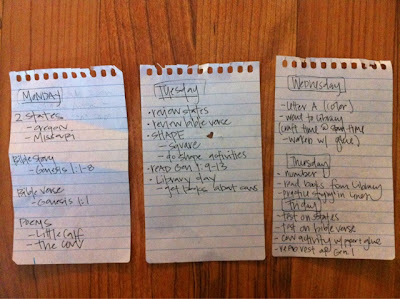 Monday
2 states
- oregon
- Missouri
Bible story
- Genesis 1:1-8
Bible verse
- Genesis 1:1
Poems
- Little Calf
- The Cow
Tuesday
• review states
• review bible verse
• SHAPE
- square
- do shape activities
• read Gen 1:9-13
• Library day
- get books about cows
Wednesday
- letter A (color)
- went to Library
(craft time & story time
- worked w/ glue)
Thursday
- number
- read books from Library
- practice
Friday
- test on states
- test on bible verse
- cow activity w/ paper & glue
- read rest of Gen. 1